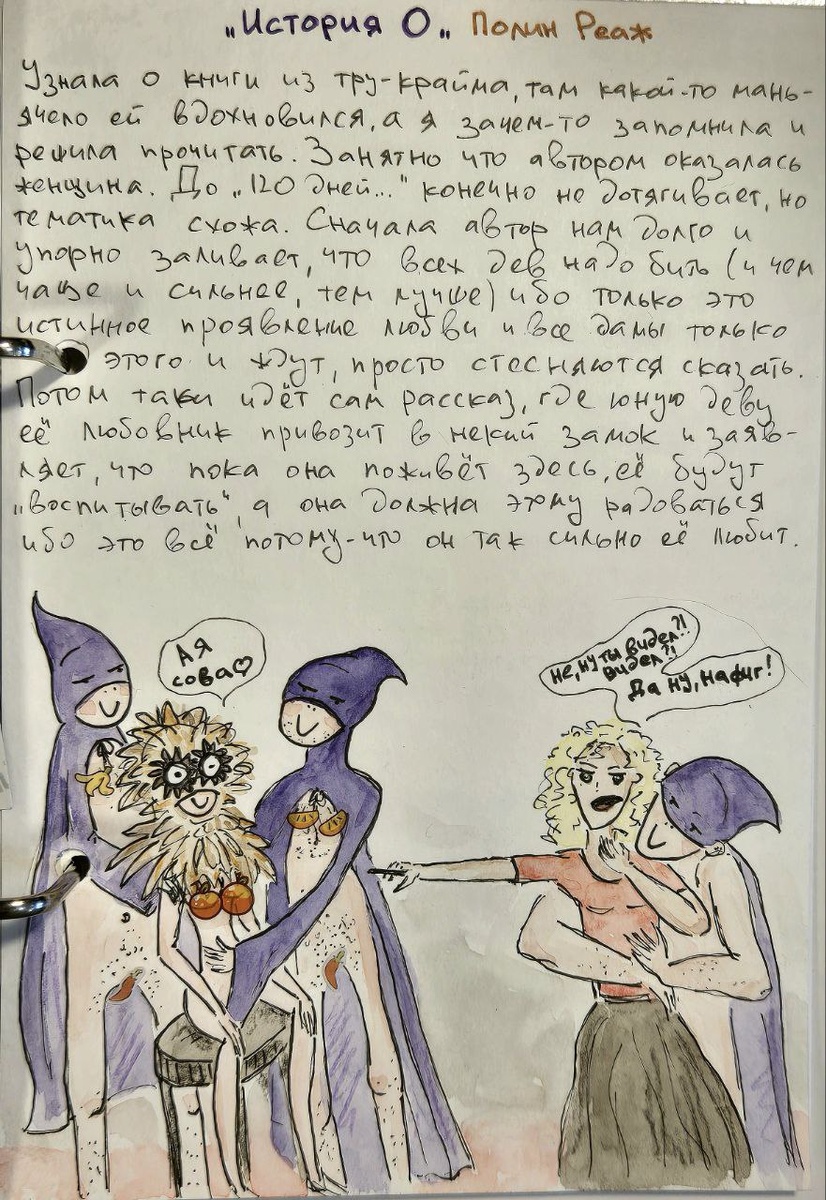 „История О„ Полин Реаж
Узнала о книги из тру-крайма, там какой-то мань-
ячело ей вдохновился, а я зачем-то запомнила и
решила прочитать. Занятно что автором оказалась
женщина. До „120 дней..." конечно не дотягивает, но
тематика схожа. Сначала автор нам долго и
упорно заливает, что всех дев надо бить (и чем
чаще и сильнее, тем лучше) ибо только это
истинное проявление любви и все дамы только
этого и ждут, просто стесняются сказать.
Потом таки идёт сам рассказ, где юную деву
её любовник привозит в некий замок и заяв-
ляет, что пока она поживёт здесь, её будут
„воспитывать", а она должна этому радоваться
ибо это всё потому-что он так сильно её любит.
А я
сова♡
не, ну ты видел?!
видел?!
Да ну, нафиг!